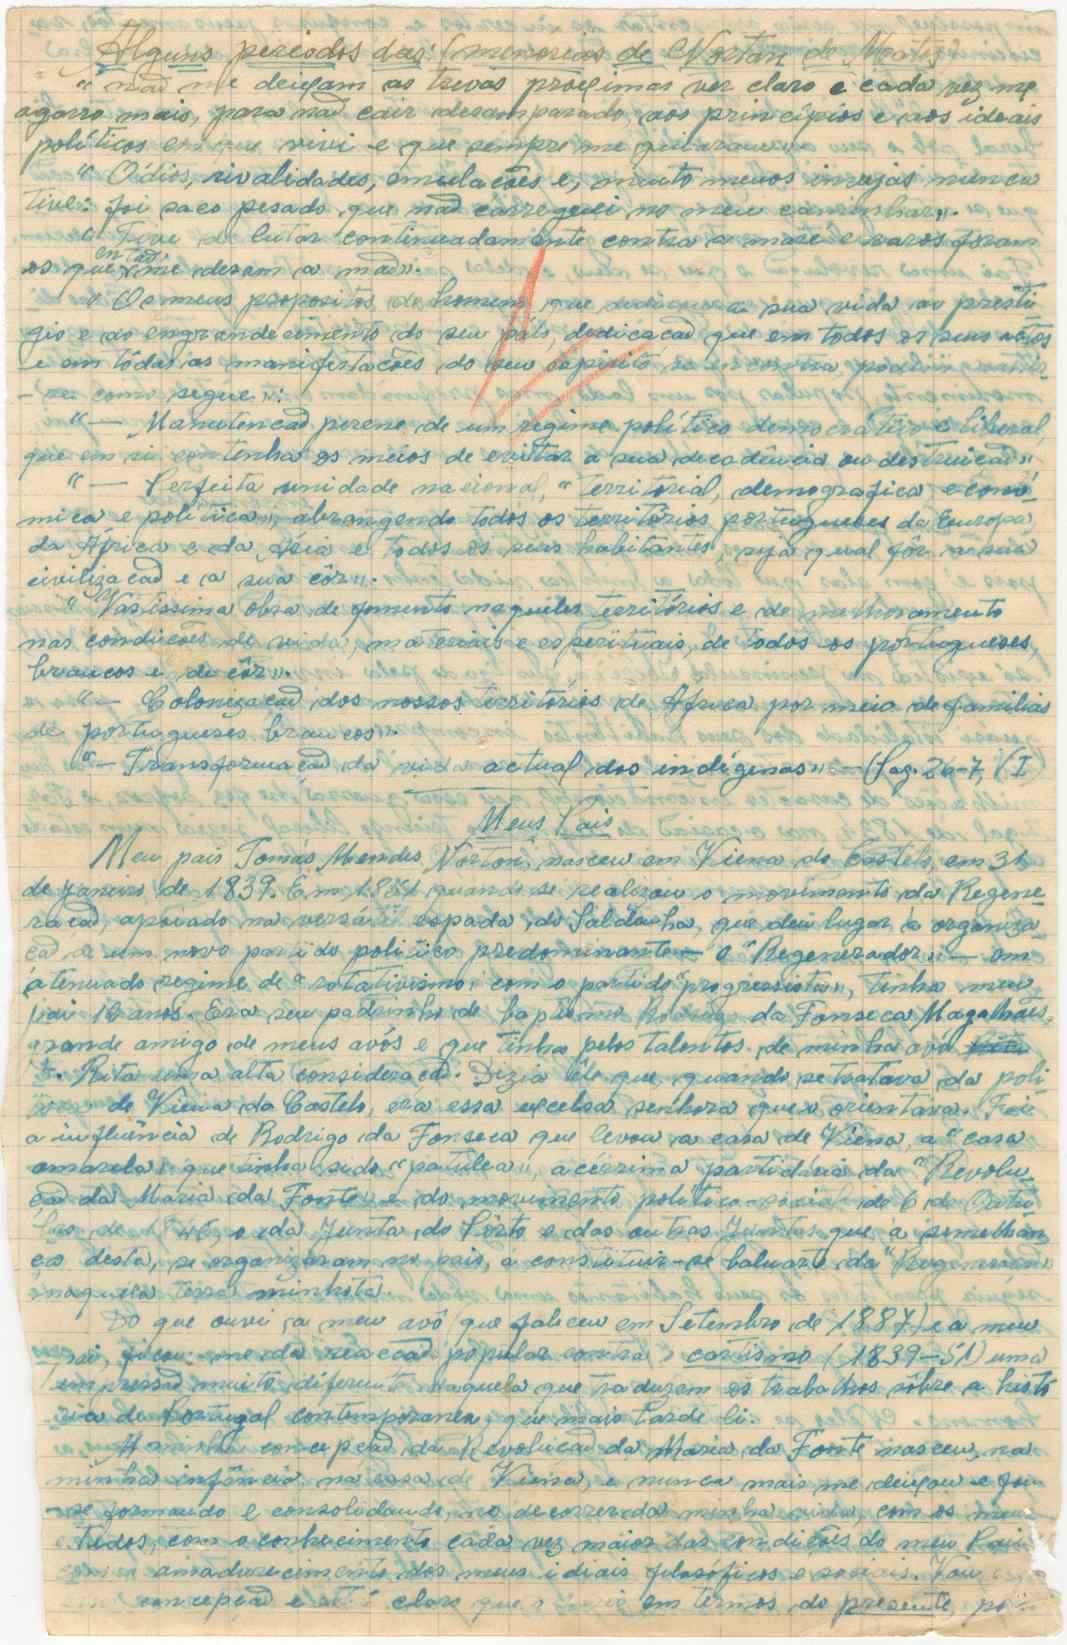 Alguns periodos das: (memorias de Norton de Matos)
"Não me deixam as trevas próximas ver claro e cada vez me
agarro mais, para não cair desamparado, aos princípios e aos ideais
políticos em que vivi e que sempre me guiaram».
"Ódios, rivalidades, emulações e, muito menos invejas nunca
tive: foi saco pesado que não carreguei no meu caminhar».
"Tive de lutar continuadamente contra a maré e raros foram
os que então me deram a mão».
"Os meus propositos de homem que dedicou a sua vida ao prestí-
gio e ao engrandecimento do seu país, dedicação que em todos os seus actos
e em tôdas as manifestações do seu espirito se encontra, podem
-se como segue»:
"— Manutenção perene de um regime político democrático e liberal,
que em si contenha os meios de evitar a sua decadência ou destruição»
"— Perfeita unidade nacional, "territorial, demografica, econó-
mica e politica», abrangendo todos os territórios portugueses da Europa,
da África e da Ásia e todos os seus habitantes, seja qual fôr a sua
civilização e a sua côr».
"Vastissima obra de fomento naqueles territórios e de melhoramento
nas condições de vida, materiais e espirituais, de todos os portugueses,
brancos e de côr».
"— Colonização dos nossos territórios de Africa por meio de familias
de portugueses brancos».
"— Transformação da vida actual dos indígenas» — (Pag. 26-7, (I)
Meus Pais
Meu pai Tomás Mendes Norton, nasceu em Viana do Castelo em 31
de Janeiro de 1839. Em 1851 quando se realizou o movimento da Regene-
ração, apoiado na versátil espada do Saldanha, que deu lugar á organiza-
ção de um novo partido político predominante — o "Regenerador» — em
atenuado regime de "rotativismo» com o partido "progressista», tinha meu
pai 12 anos. Era seu padrinho de baptismo Rodrigo da Fonseca Magalhães,
grande amigo de meus avós e que tinha pelos talentos de minha avó
D. Rita uma alta consideração. Dizia êle que, quando se tratava da polí-
tica de Viana do Castelo, era essa excelsa senhora que o orientava. Foi
a influência de Rodrigo da Fonseca que levou a casa de Viana, a "casa
amarela» que tinha sido "patuleia», acérrima partidária da "Revolu-
ção da Maria da Fonte» e do movimento político-social de 6 de Outu-
bro de 1846, o da Junta do Pôrto e das outras Juntas que á semelhan-
ça desta, se organizaram no país, a constituir-se baluarte da "Regeneração»
naquela terra minhota.
Do que ouvi a meu avô (que faleceu em Setembro de 1887) e a meu
pai, ficou-me da reacção popular contra o cartismo (1839-51) uma
impressão muito diferente daquela que traduzem os trabalhos sôbre a histó-
ria de Portugal contemporanea, que mais tarde li.
A minha concepção da Revolução da Maria da Fonte nasceu, na
minha infância na casa de Viana, e nunca mais me deixou e foi-
-se formando e consolidando, no decorrer da minha vida, com os meus
estudos, com o conhecimento cada vez maior das condições do meu País
amadurecimento dos meus idiais filosóficos e sociais. Vou
concepção e está claro que o em termos do presente, po